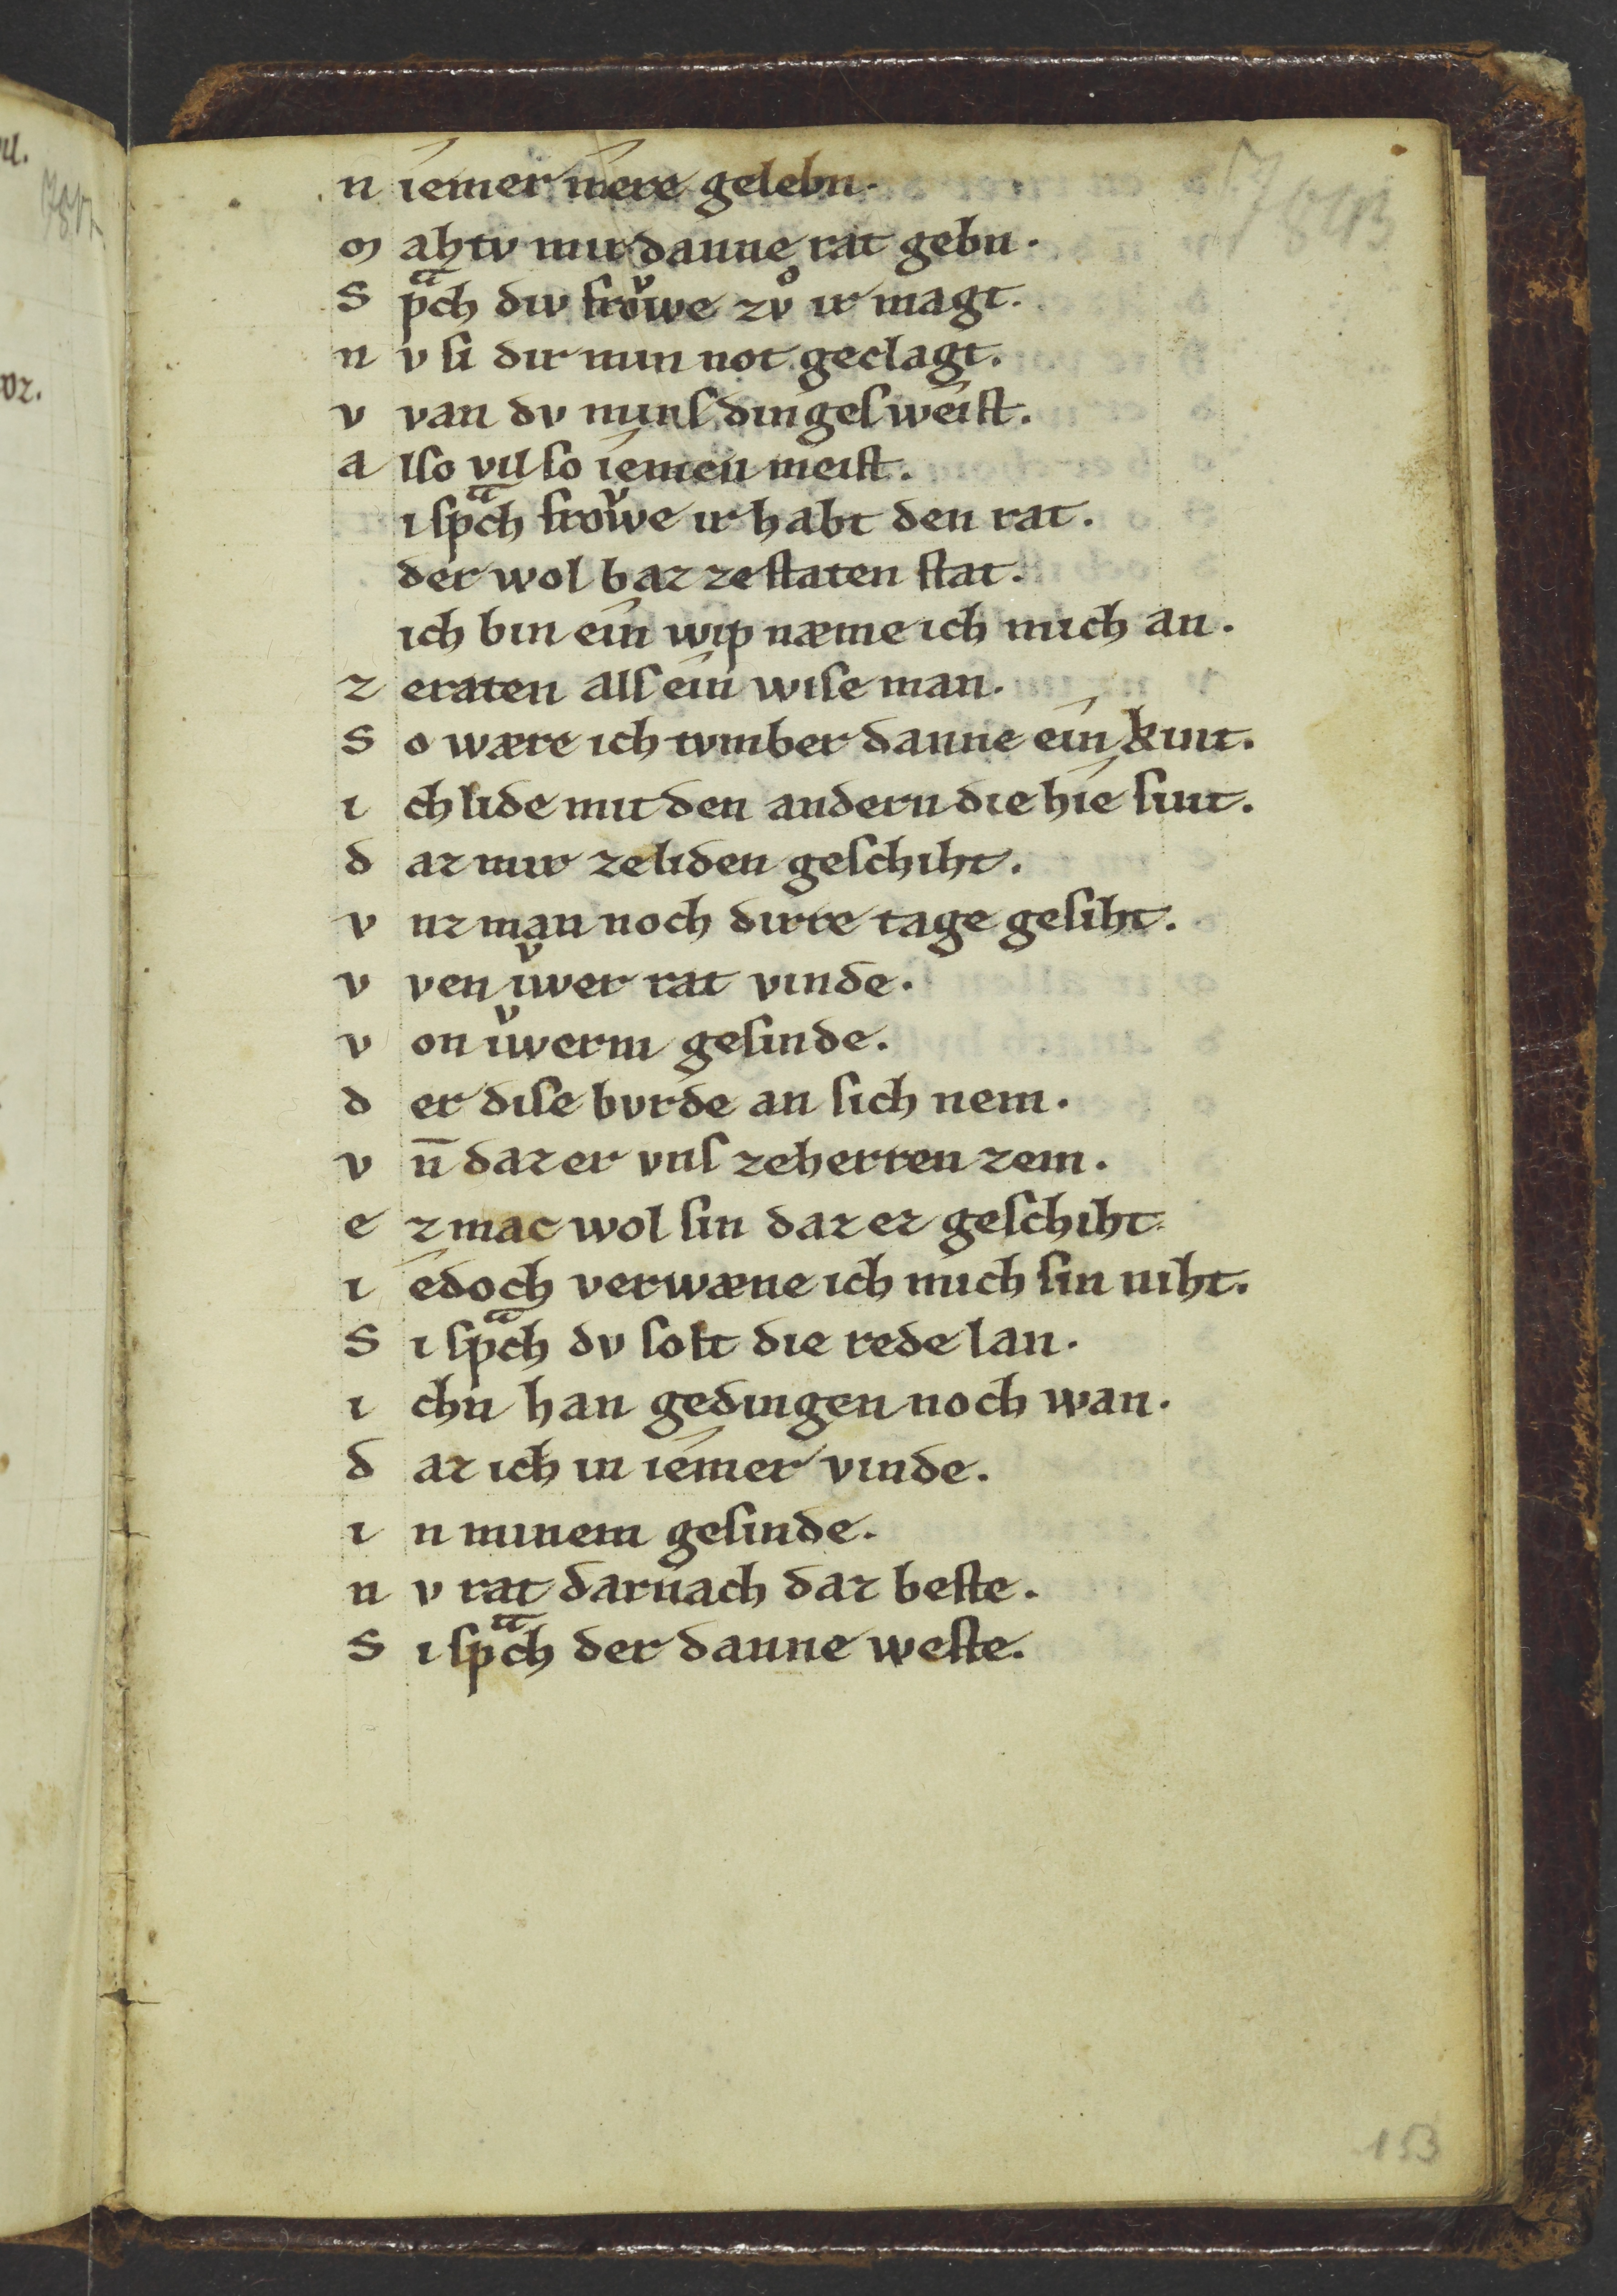 n iemer mere gelebn.
m ahtv mir danne rat gebn.
S pͣch div froͮwe zvͦ ir magt.
n v si dir min not geclagt.
v van dv minſ dingeſ weiſt.
a lſo vil ſo iemen meiſt.
i ſpͣch froͮwe ir habt den rat.
der wol baz ze ſtaten ſtat.
ich bin ein wip næme ich mich an.
z eraten alſ ein wiſe man.
S o wære ich tvmber danne ein kint.
i ch lide mit den andern die hie ſint.
d az mir ze liden geſchiht.
v nz man noch dirre tage geſiht.
v ven iͮwer rat vinde.
v on iͮwerm geſinde.
d er diſe bvrde an ſich nem.
v n̄ daz er vnſ ze herren zem.
e z mac wol ſin daz ez geſchiht.
i edoch verwæne ich mich ſin niht.
S i ſpͣch dv ſolt die rede lan.
i chn han gedingen noch wan.
d az ich in iemer vinde.
i n minem geſinde.
n v rat darnach daz beſte.
S i ſpͣch der danne weſte.
153